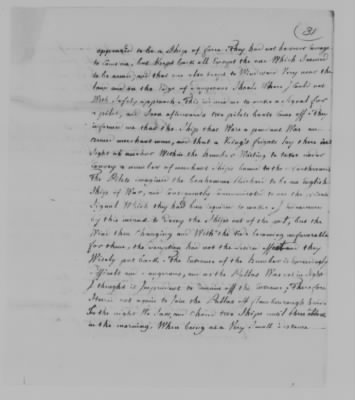 (31
appeared to be a Ships of force. They had not however courage
to Come on, but kept back all Except the one Which Seemed
to be armed, and that one also kept to Windward Very near the
land and on the Edge of dangerous Shoals Where I Could not
With Safety approach. This induced me to make a Signal for
a pilot, and Soon afterwards two pilots boats Came off. They
informed me that the Ship that Wore a pendant Was an
armed merchant man, and that a King's frigate lay there in
Sight at anchor Within the Humber Waiting to take under
Convoy a number of merchant Ships bound to the northward.
The Pilots imagined the bonhomme Richard to be an English
Ship of War, and Consequently Communicated to me the private
Signal Which they had been required to make. I endeavored
by this means to decoy the Ships out of the port, but the
Wind then Changing and With the Tide becoming unfavorable
for them, the deception had not the desired effect and they
Wisely put back. The Entrance of the Humber is Exceedingly
difficult and dangerous, and as the Pallas Was not in Sight
I thought it Imprudent to remain off the Entrance; Therefore
Steered out again to Join the Pallas off Flamborough head.
In the night We Saw and Chased two Ships until three oClock
in the morning, When being at a Very Small distance